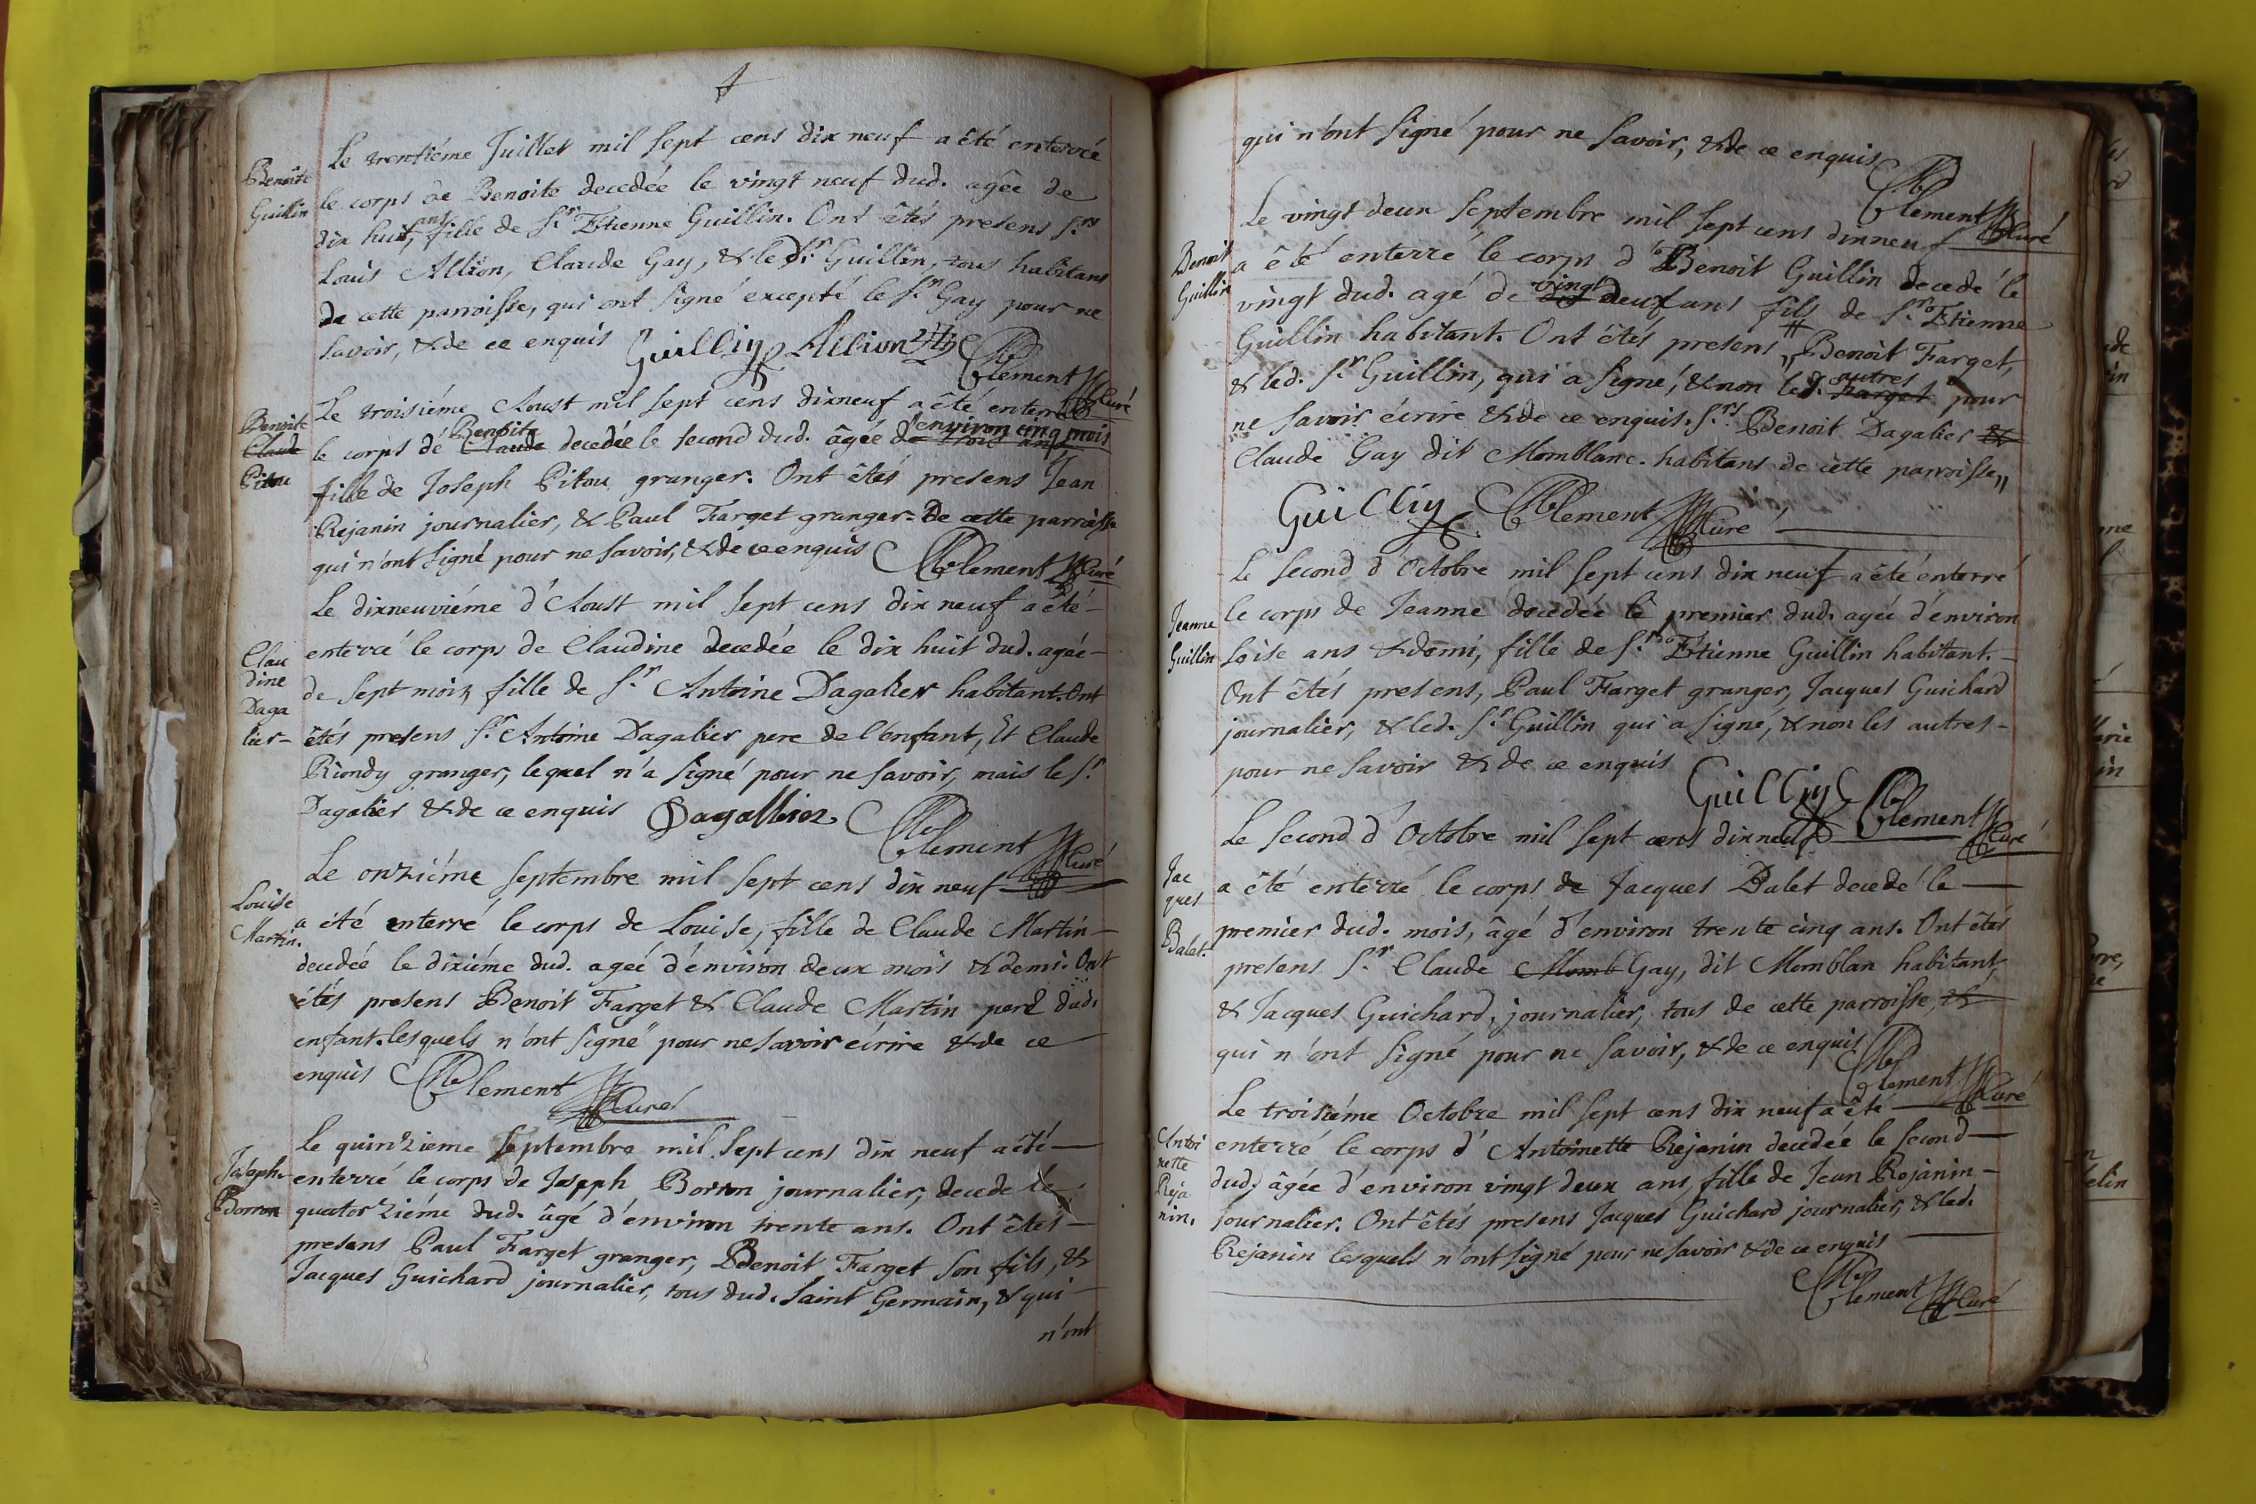 Benoite
Guillin
Le trentiéme Juillet mil sept cens dix neuf a êté enterré
le corps de Benoite decedée le vingt neuf dud. agée de
dix huit ans, fille de Sr. Etienne Guillin. Ont êtés presens Srs
Louis Allion, Claude Gay, & led. Sr. Guillin, tous habitans
de cette parroisse, qui ont signé excepté le Sr. Gay pour ne
savoir, & de ce enquis Guillin Allion
Clement Curé
Benoite
Claude
Pitou
Le troisiéme Aoust mil sept cens dixneuf a êté enterré
Benoite environ cinq mois
le corps de Claude decedée le second dud. âgée de trois ans
fille de Joseph Pitou granger. Ont êtés presens Jean
Rejanin journalier, & Paul Farget granger. De cette parroisse
qui n'ont signé pour ne savoir, & de ce enquis Clement Curé
Clau
dine
Daga
lier
Le dixneuviéme d'Aoust mil sept cens dix neuf a êté
enterré le corps de Claudine decedée le dix huit dud. agée
de sept mois, fille de Sr. Antoine Dagalier habitant. Ont
êtés presens Sr. Antoine Dagalier pere de l'enfant, Et Claude
Riondy granger, lequel n'a signé pour ne savoir, mais le Sr
Dagalier & de ce enquis Dagallier
Clement Curé
Louise
Martin.
Le onziéme septembre mil sept cens dix neuf
a été enterré le corps de Louise, fille de Claude Martin
decedée le dixiéme dud. agée d'environ deux mois & demi. Ont
êtés presens Benoit Farget & Claude Martin pere dud.
enfant. lesquels n'ont signé pour ne savoir écrire & de ce
enquis Clement Curé
Joseph
Borron
Le quinzieme septembre mil sept cens dix neuf a été
enterré le corps de Joseph Borron journalier, decedé le
quatorziéme dud. âgé d'environ trente ans. Ont êtés
presens Paul Farget granger, Benoit Farget son fils, &
Jacques Guichard journalier, tous dud. Saint Germain, & qui
n'ont
qui n'ont signé pour ne savoir, & de ce enquis
Clement Curé
Benoit
Guillin
Le vingt deux septembre mil sept cens dixneuf
a êté enterré le corps d Benoit Guillin decedé le
vingt
vingt dud. agé de neuf ans fils de Sr. Etienne
Guillin habitant. Ont êtés presens, Benoit Farget,
autres
& led. Sr. Guillin, qui a signé, & non led. Farget pour
ne savoir écrire & de ce enquis. Srs. Benoit Dagalier &
Claude Gay dit Momblanc. habitans de cette parroisse,,
Guillin Clement Curé
Jeanne
Guillin
Le second d'Octobre mil sept cens dix neuf a êté enterré
le corps de Jeanne decedée le premier dud. agée d'environ
soise ans & demi, fille de Sr. Etienne Guillin habitant.
Ont êtés presens, Paul Farget granger, Jacques Guichard
journalier, & led. Sr. Guillin qui a signé, & non les autres
pour ne savoir & de ce enquis
Guillin Clement Curé
Jac
ques
Balet.
Le second d'Octobre mil sept cens dixneuf
a êté enterré le corps de Jacques Balet decedé le
premier dud. mois, âgé d'environ trente cinq ans. Ont êtés
presens Sr. Claude Momb Gay, dit Momblan habitant,
& Jacques Guichard, journalier, tous de cette parroisse, &
qui n'ont signé pour ne savoir, & de ce enquis
Clement Curé
Antoi
nette
Reja
nin.
Le troisiéme Octobre mil sept cens dix neuf a êté
enterré le corps d'Antoinette Rejanin decedée le second
dud. âgée d'environ vingt deux ans, fille de Jean Rejanin
journalier. Ont êtés presens Jacques Guichard journalier, & led.
Rejanin lesquels n'ont signé pour ne savoir & de ce enquis
Clement Curé